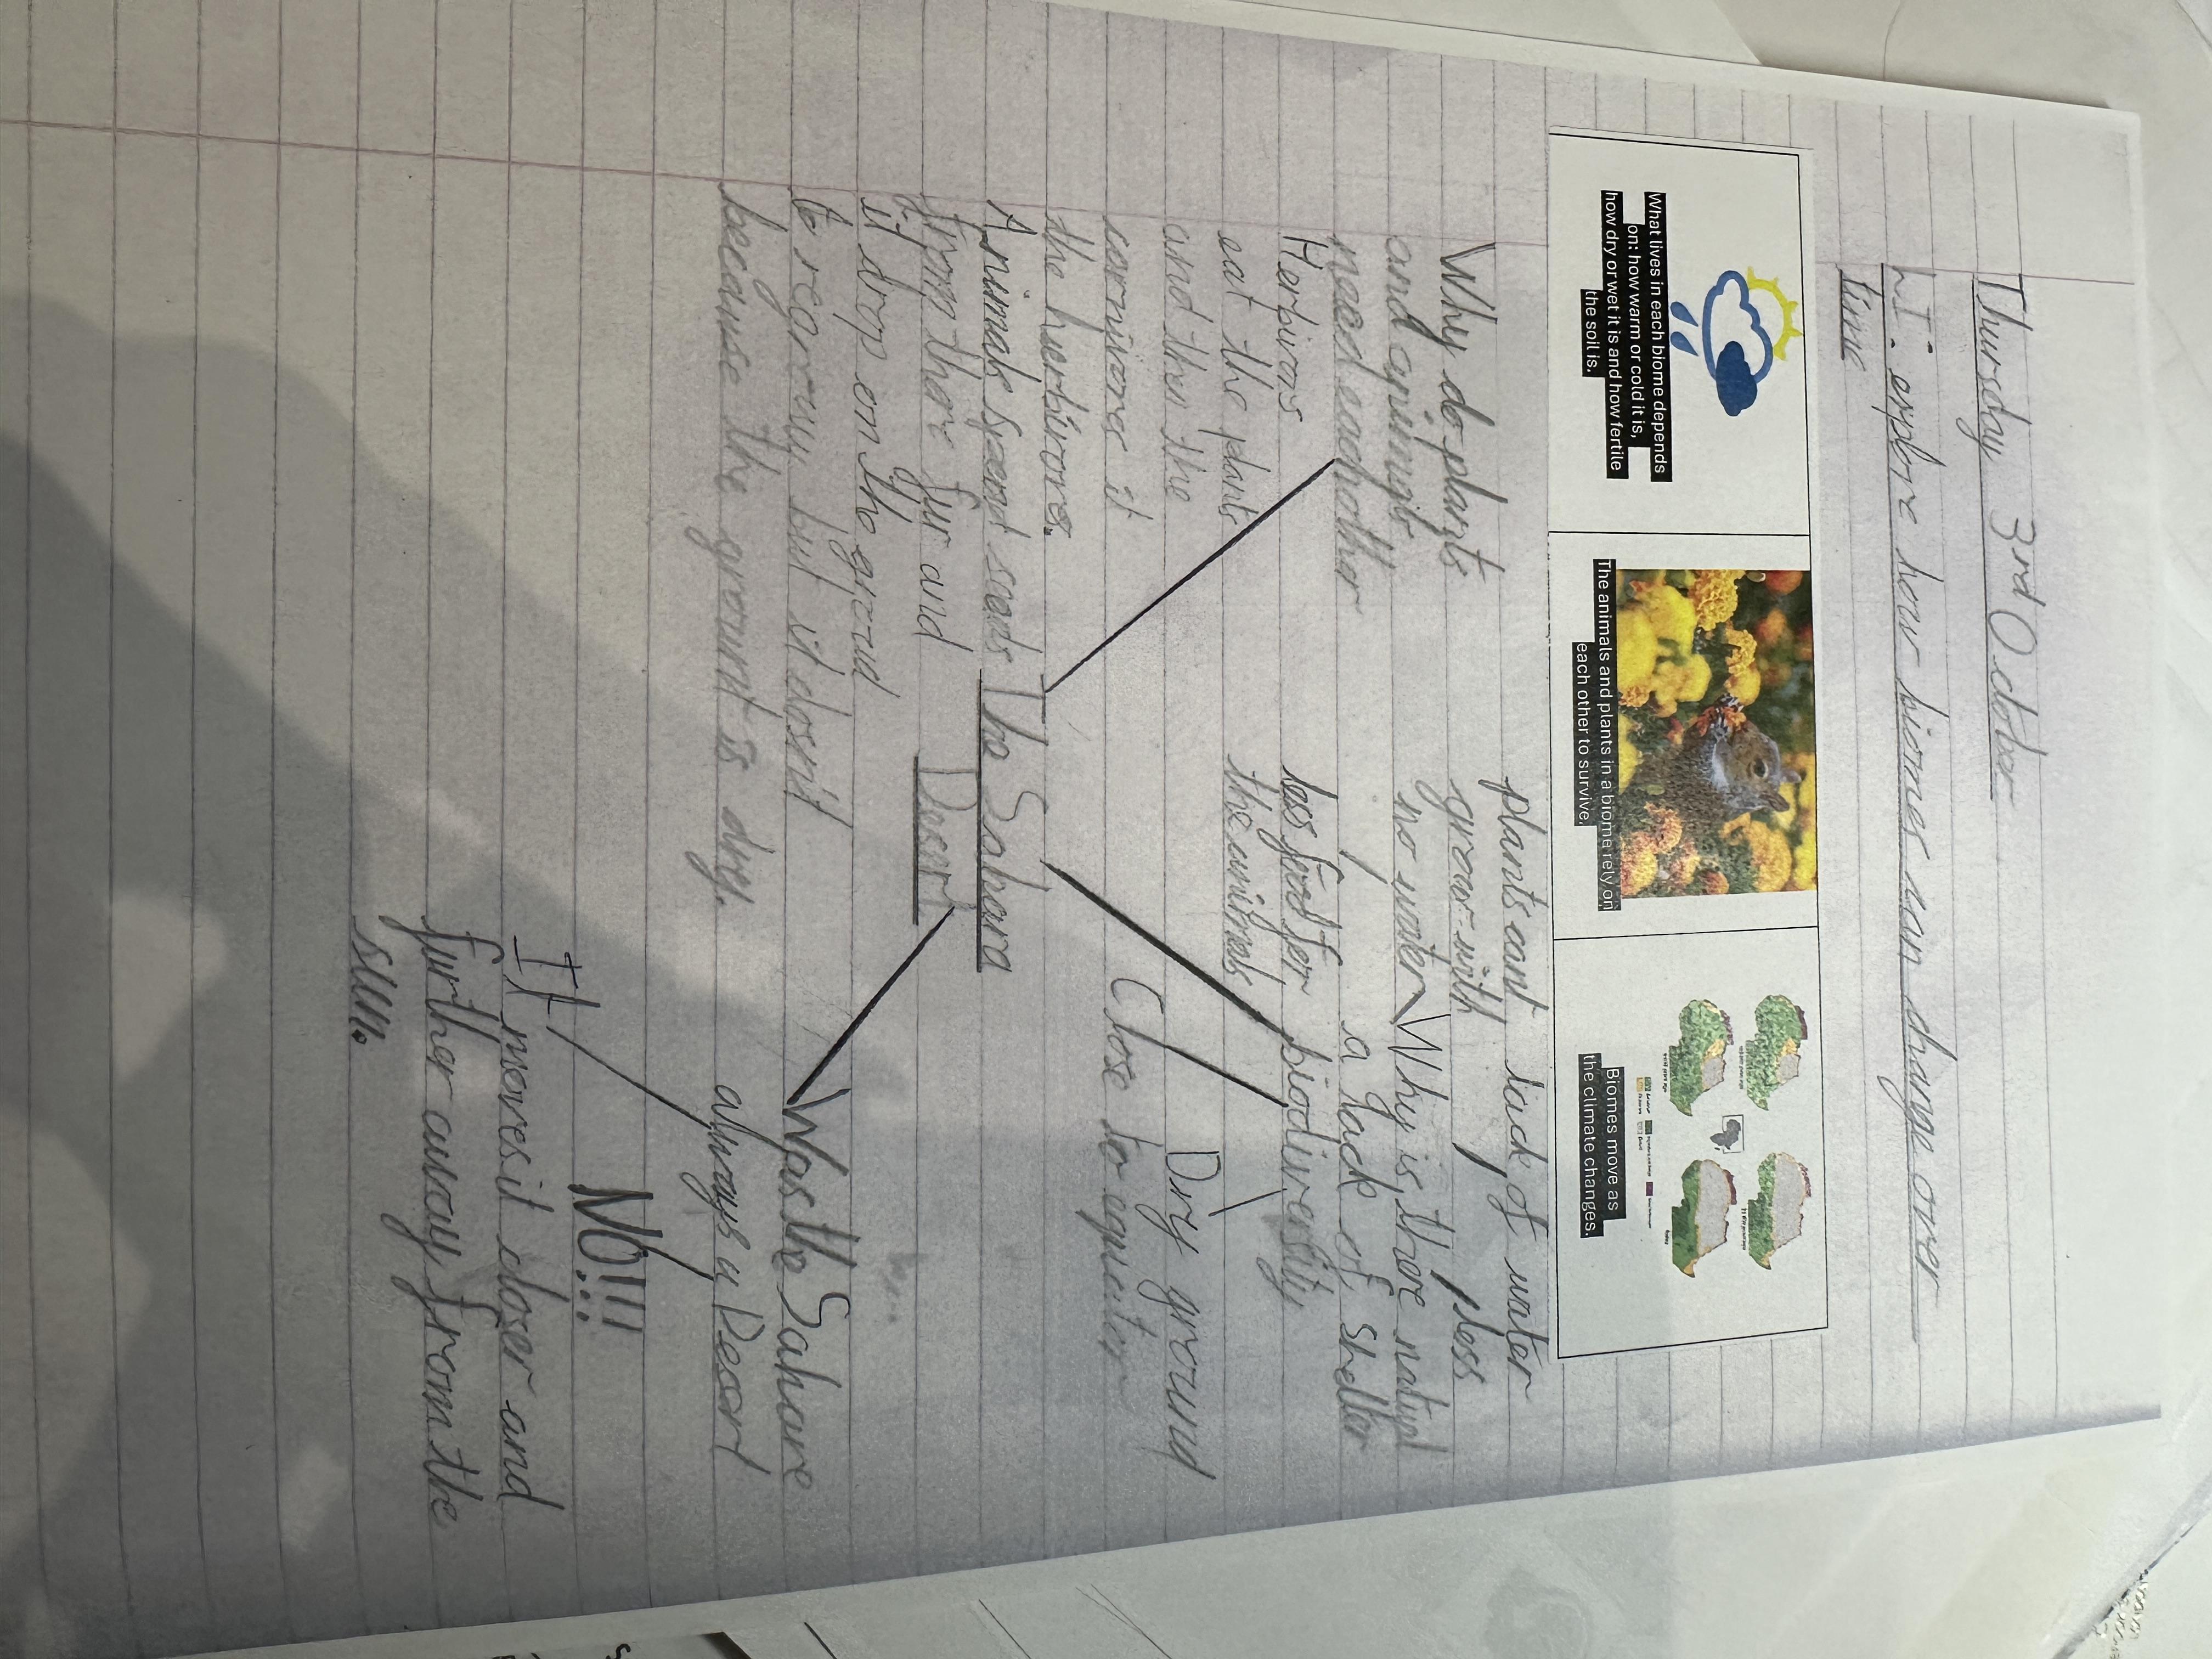 Thursday 3rd October
LI: explore how biomes can change over
time
What lives in each biome depends
on: how warm or cold it is,
how dry or wet it is and how fertile
the soil is.
The animals and plants in a biome rely on
each other to survive.
Biomes move as
the climate changes.
Why do plants
and animals
need eachother
Herbivors
eat the plants
and then the
carnivores it
the herbivores.
Animals spead seeds
from ther fur and
it drop on the groud
to regrow but it dosn't
because the ground is dry.
plants cant
grow with
no water
less food for
the animals
lack of water
Why is there
less
a lack of shelter
biodiversity
Dry ground
Close to equator
The Sahara
Desert
Was the Sahare
always a Desert
NO!!!
It moves it closer and
further away from the
sun.